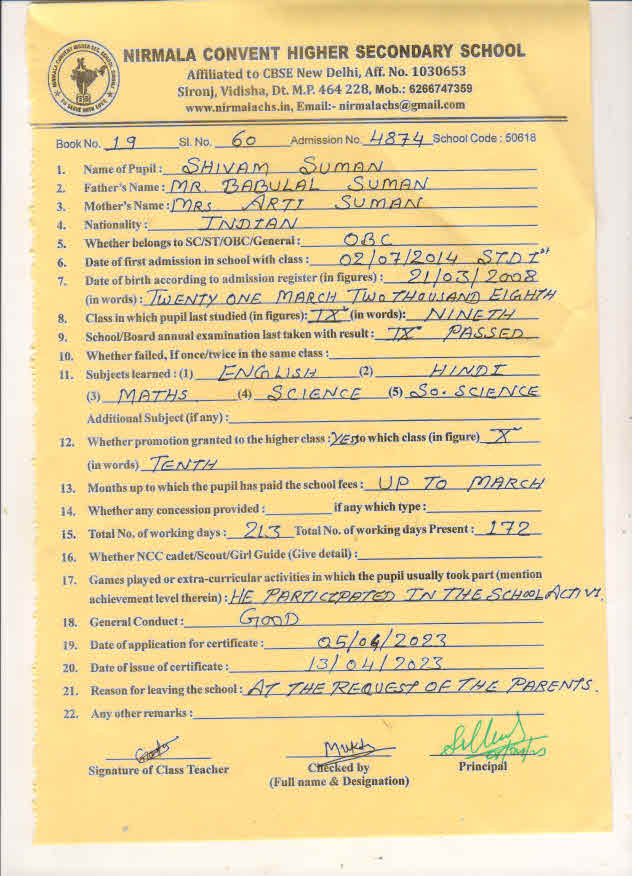 NIRMALA CONVENT HIGHER SECONDARY SCHOOL
Affiliated to CBSE New Delhi, Aff. No. 1030653
Sironj, Vidisha, Dt. M.P. 464 228, Mob.: 6266747359
www.nirmalachs.in, Email:- nirmalachs@gmail.com
Book No. 19 Sl. No. 60 Admission No. 4874 School Code : 50618
1. Name of Pupil : SHIVAM SUMAN
2. Father's Name : MR. BABULAL SUMAN
3. Mother's Name : MRS ARTI SUMAN
4. Nationality : INDIAN
5. Whether belongs to SC/ST/OBC/General : OBC
6. Date of first admission in school with class : 02/07/2014 STD I st
7. Date of birth according to admission register (in figures) : 21/03/2008
(in words) : TWENTY ONE MARCH TWO THOUSAND EIGHTH
8. Class in which pupil last studied (in figures): IX (in words): NINETH
9. School/Board annual examination last taken with result : IX PASSED
10. Whether failed, If once/twice in the same class :
11. Subjects learned : (1) ENGLISH (2) HINDI
(3) MATHS (4) SCIENCE (5) SO. SCIENCE
Additional Subject (if any) :
12. Whether promotion granted to the higher class : YES to which class (in figure) X
(in words) TENTH
13. Months up to which the pupil has paid the school fees : UP TO MARCH
14. Whether any concession provided : if any which type :
15. Total No. of working days : 213 Total No. of working days Present : 172
16. Whether NCC cadet/Scout/Girl Guide (Give detail) :
17. Games played or extra-curricular activities in which the pupil usually took part (mention
achievement level therein) : HE PARTICIPATED IN THE SCHOOL ACTIVI.
18. General Conduct : GOOD
19. Date of application for certificate : 05/04/2023
20. Date of issue of certificate : 13/04/2023
21. Reason for leaving the school : AT THE REQUEST OF THE PARENTS.
22. Any other remarks :
Signature of Class Teacher Checked by Principal
(Full name & Designation)